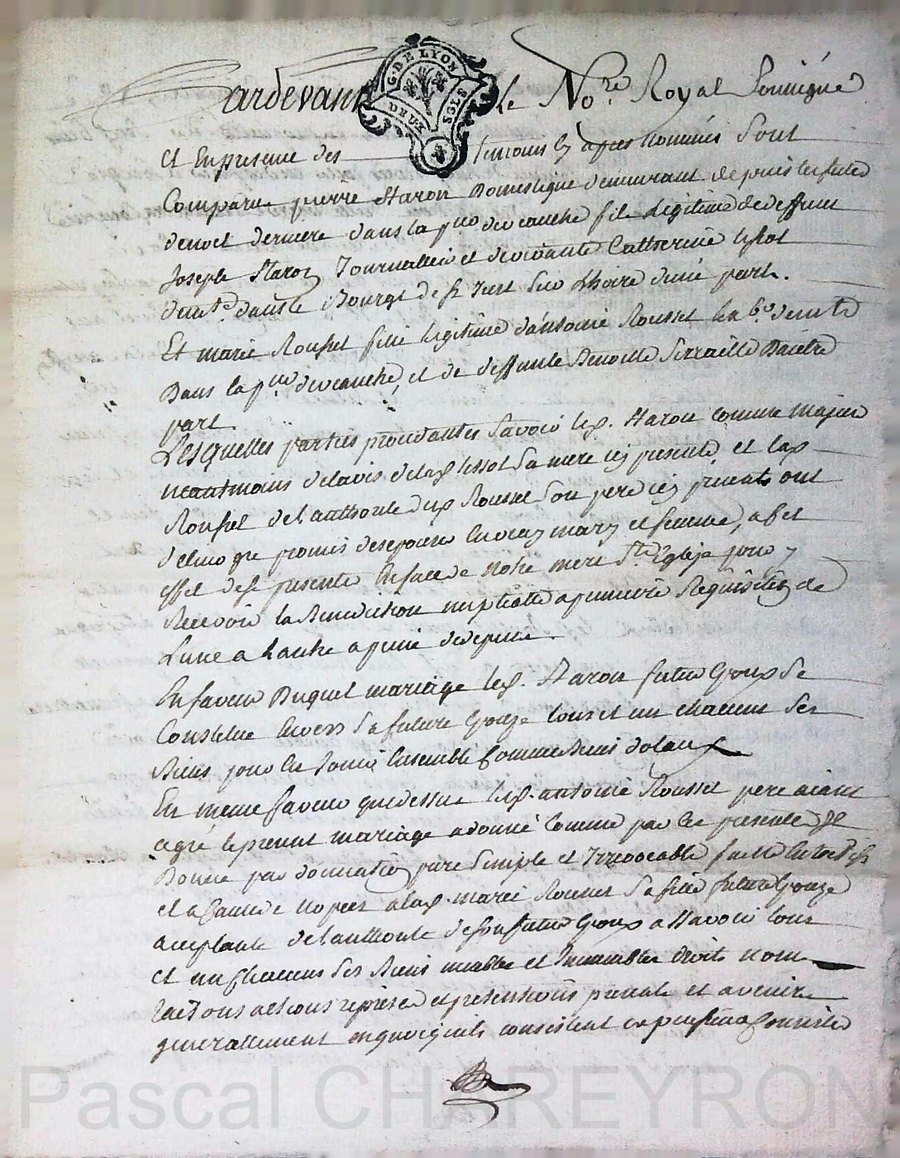 Pardevant le No.re Royal Soussigné
G. DE LYON
DEUX SOLS
Et En presence des temoins cy apres nommés sont
Comparu pierre Haron Domestique demeurant depuis les fetes
denoel derniere dans la p.sse fils Legitime de deffunt
Joseph Haron Journallier et de vivante Catherine
dem.te dans le Bourgt de S.t Just d'une part.
Et marie Rousset fille legitime d'antoine Rousset dem.te
Dans la p.sse et de deffunte Benoitte D'autre
part
Lesquelles parties procedantes savoir led. Haron comme majeur
neantmoins de lavis de lad. sa mere icy presente et lad.
Rousset de lauthorité dud. Rousset son pere icy present ont
de leur gré promis de sepouser en vray mary et femme, a cet
effet de se presenter en face de notre mere S.te Eglise pour y
Recevoir la Benediction nuptialle a premiere Requisition de
Lune a Lautre a peine de depens.
En faveur Duquel mariage led. Haron futur Epoux se
Constitue Envers sa future Epouze tous et un chacuns ses
Biens pour En Jouir Ensemble Comme Biens dotaux
En meme faveur que dessus led. antoine Rousset pere aiant
agré le present mariage a donné Comme par ces presentes il
Donne par donnation pure simple et Irrevocable faitte entre vifs
et a Cause de nopces a lad. marie Rousset sa fille future Epouze
acceptante de lauthorité de son futur Epoux a Scavoir tous
et un Chacuns ses Biens meubles et Immeubles droits noms
raisons actions reprises et pretentions presents et avenir
generallement en quoi qu'ils consistent
Pascal CHAREYRON